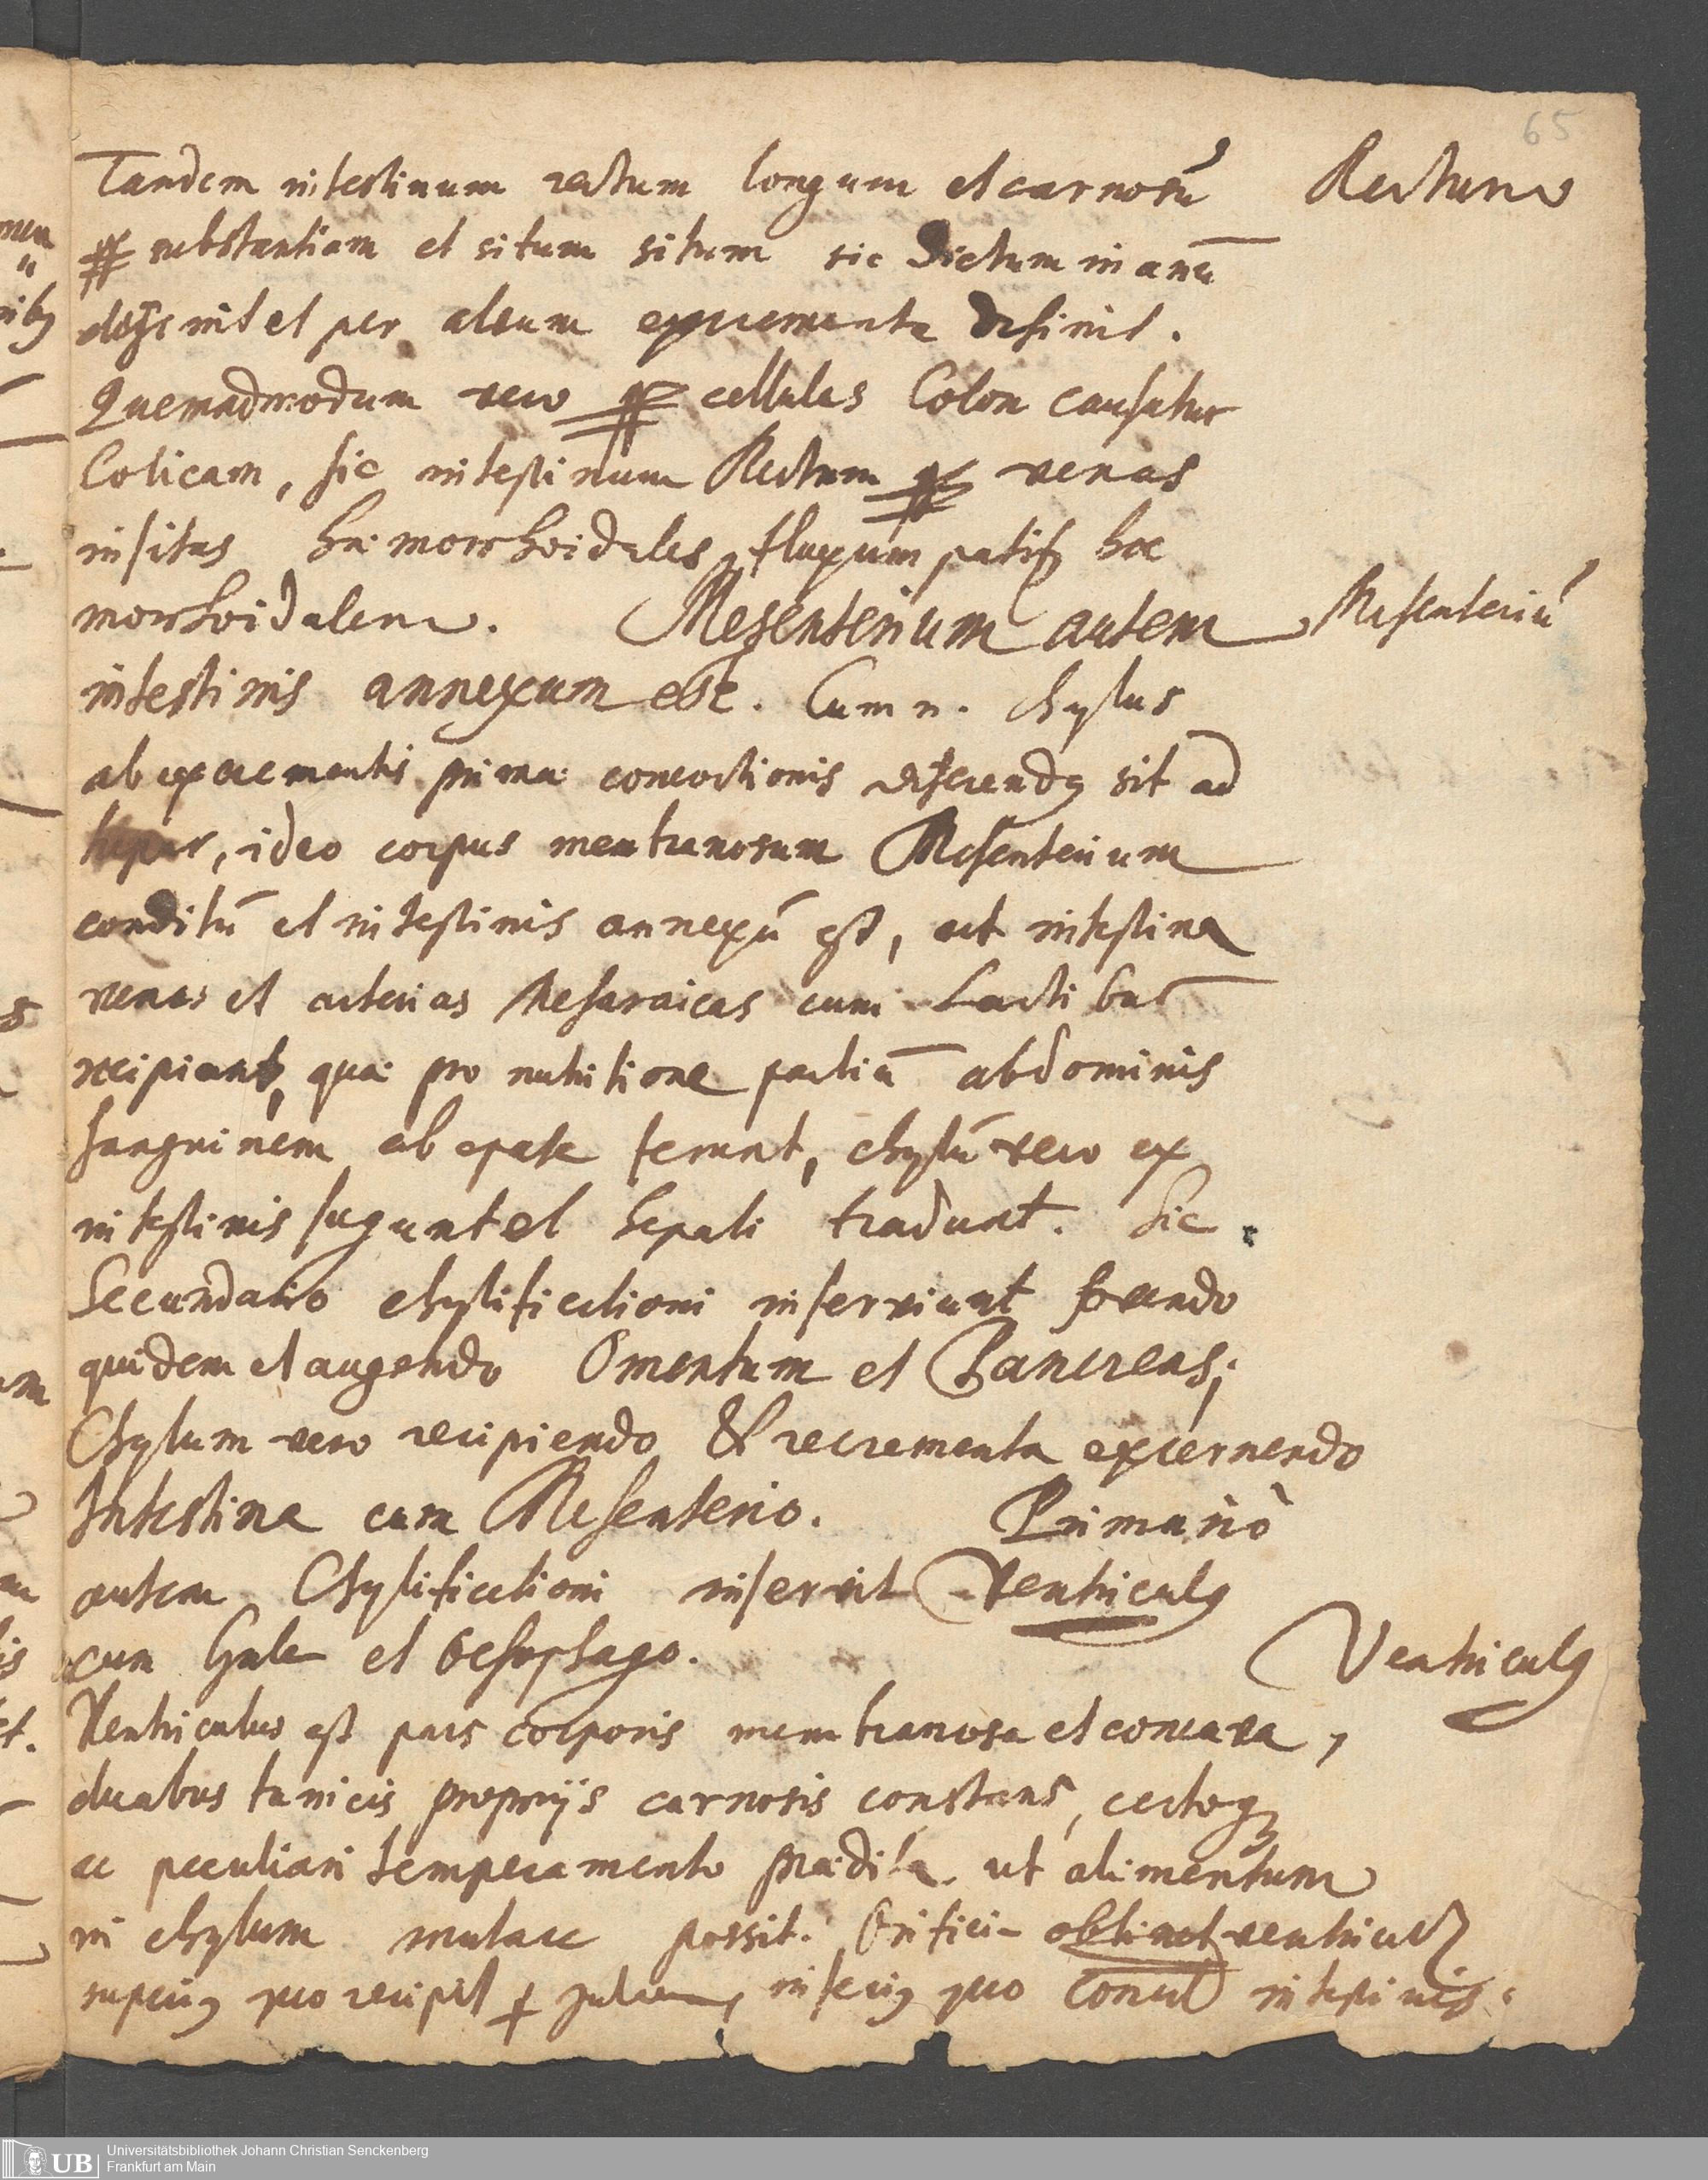 65
Tandem intestinum rectum longum et carnosū
Rectum
substantiam et situm situm sic Dictum in anū
desinit et per alvum excrementa desinit.
Quemadmodum vero cellulas Colon causatur
Colicam, sic intestinum Rectum venas
insitas hæmorrhoidales, fluxum patitʒ hæ
morrhoidalem. Mesenterium autem
Mesenteriū
intestinis annexum est. Cum n. chylus
ab excrementis primæ concoctionis ad
hepar, ideo corpus membranosum Mesenterium
conditū et intestinis annexū est, ut intestina
venas et arterias Mesaraicas cum Lactibus
recipiant, quæ pro nutritione partiū abdominis
sanguinem ab epate ferunt, chylū vero ex
intestinis sugunt et hepati tradunt. Sic
Secundario chylificationi inserviunt fovendo
quidem et augendo Omentum et Pancreas;
Chylum vero recipiendo & recrementa excernendo
Intestina cum Mesenterio. Primariò
autem Chylificationi inservit Ventriculꝰ
cum Gula et Oesophago.
Ventriculꝰ
Ventriculus est pars corporis membranosa et concava,
duabus tunicis propriis carnosis constans, certoqʒ
ac peculiari temperamento prædita, ut alimentum
in chylum mutare possit. Orificia obtinet
superiꝰ quo recipit gulam, inferiꝰ quo intestinis.
Universitätsbibliothek Johann Christian Senckenberg
Frankfurt am Main
UB